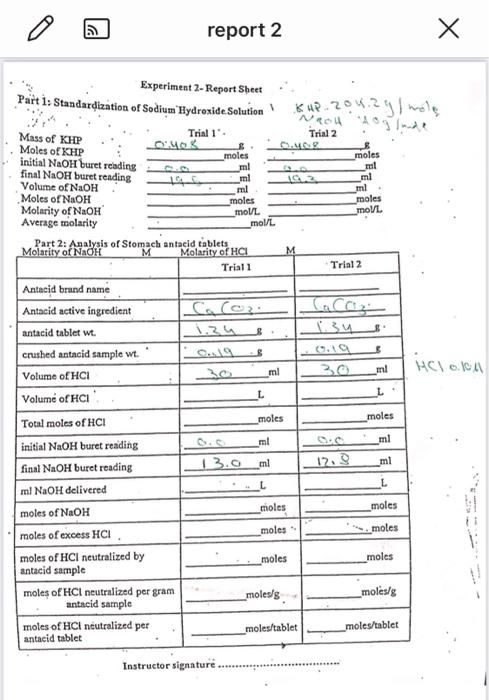 report 2
Experiment 2- Report Sheet
Part 1: Standardization of Sodium Hydroxide Solution
KHP-204.2g/mole
NaOH 40g/mole
Trial 1 Trial 2
Mass of KHP 0.408 g 0.408 g
Moles of KHP moles moles
initial NaOH buret reading 0.0 ml 0.0 ml
final NaOH buret reading ml 19.3 ml
Volume of NaOH ml ml
Moles of NaOH moles moles
Molarity of NaOH mol/L mol/L
Average molarity mol/L
Part 2: Analysis of Stomach antacid tablets
Molarity of NaOH M Molarity of HCl M
Trial 1 Trial 2
Antacid brand name
Antacid active ingredient CaCO3 CaCO3
antacid tablet wt. 1.34 g 1.34 g
crushed antacid sample wt. 0.19 g 0.19 g
Volume of HCl 30 ml 30 ml HCl 0.10M
Volume of HCl L L
Total moles of HCl moles moles
initial NaOH buret reading 0.0 ml 0.0 ml
final NaOH buret reading 13.0 ml ml
ml NaOH delivered L L
moles of NaOH moles moles
moles of excess HCl moles moles
moles of HCl neutralized by antacid sample moles moles
moles of HCl neutralized per gram antacid sample moles/g moles/g
moles of HCl neutralized per antacid tablet moles/tablet moles/tablet
Instructor signature